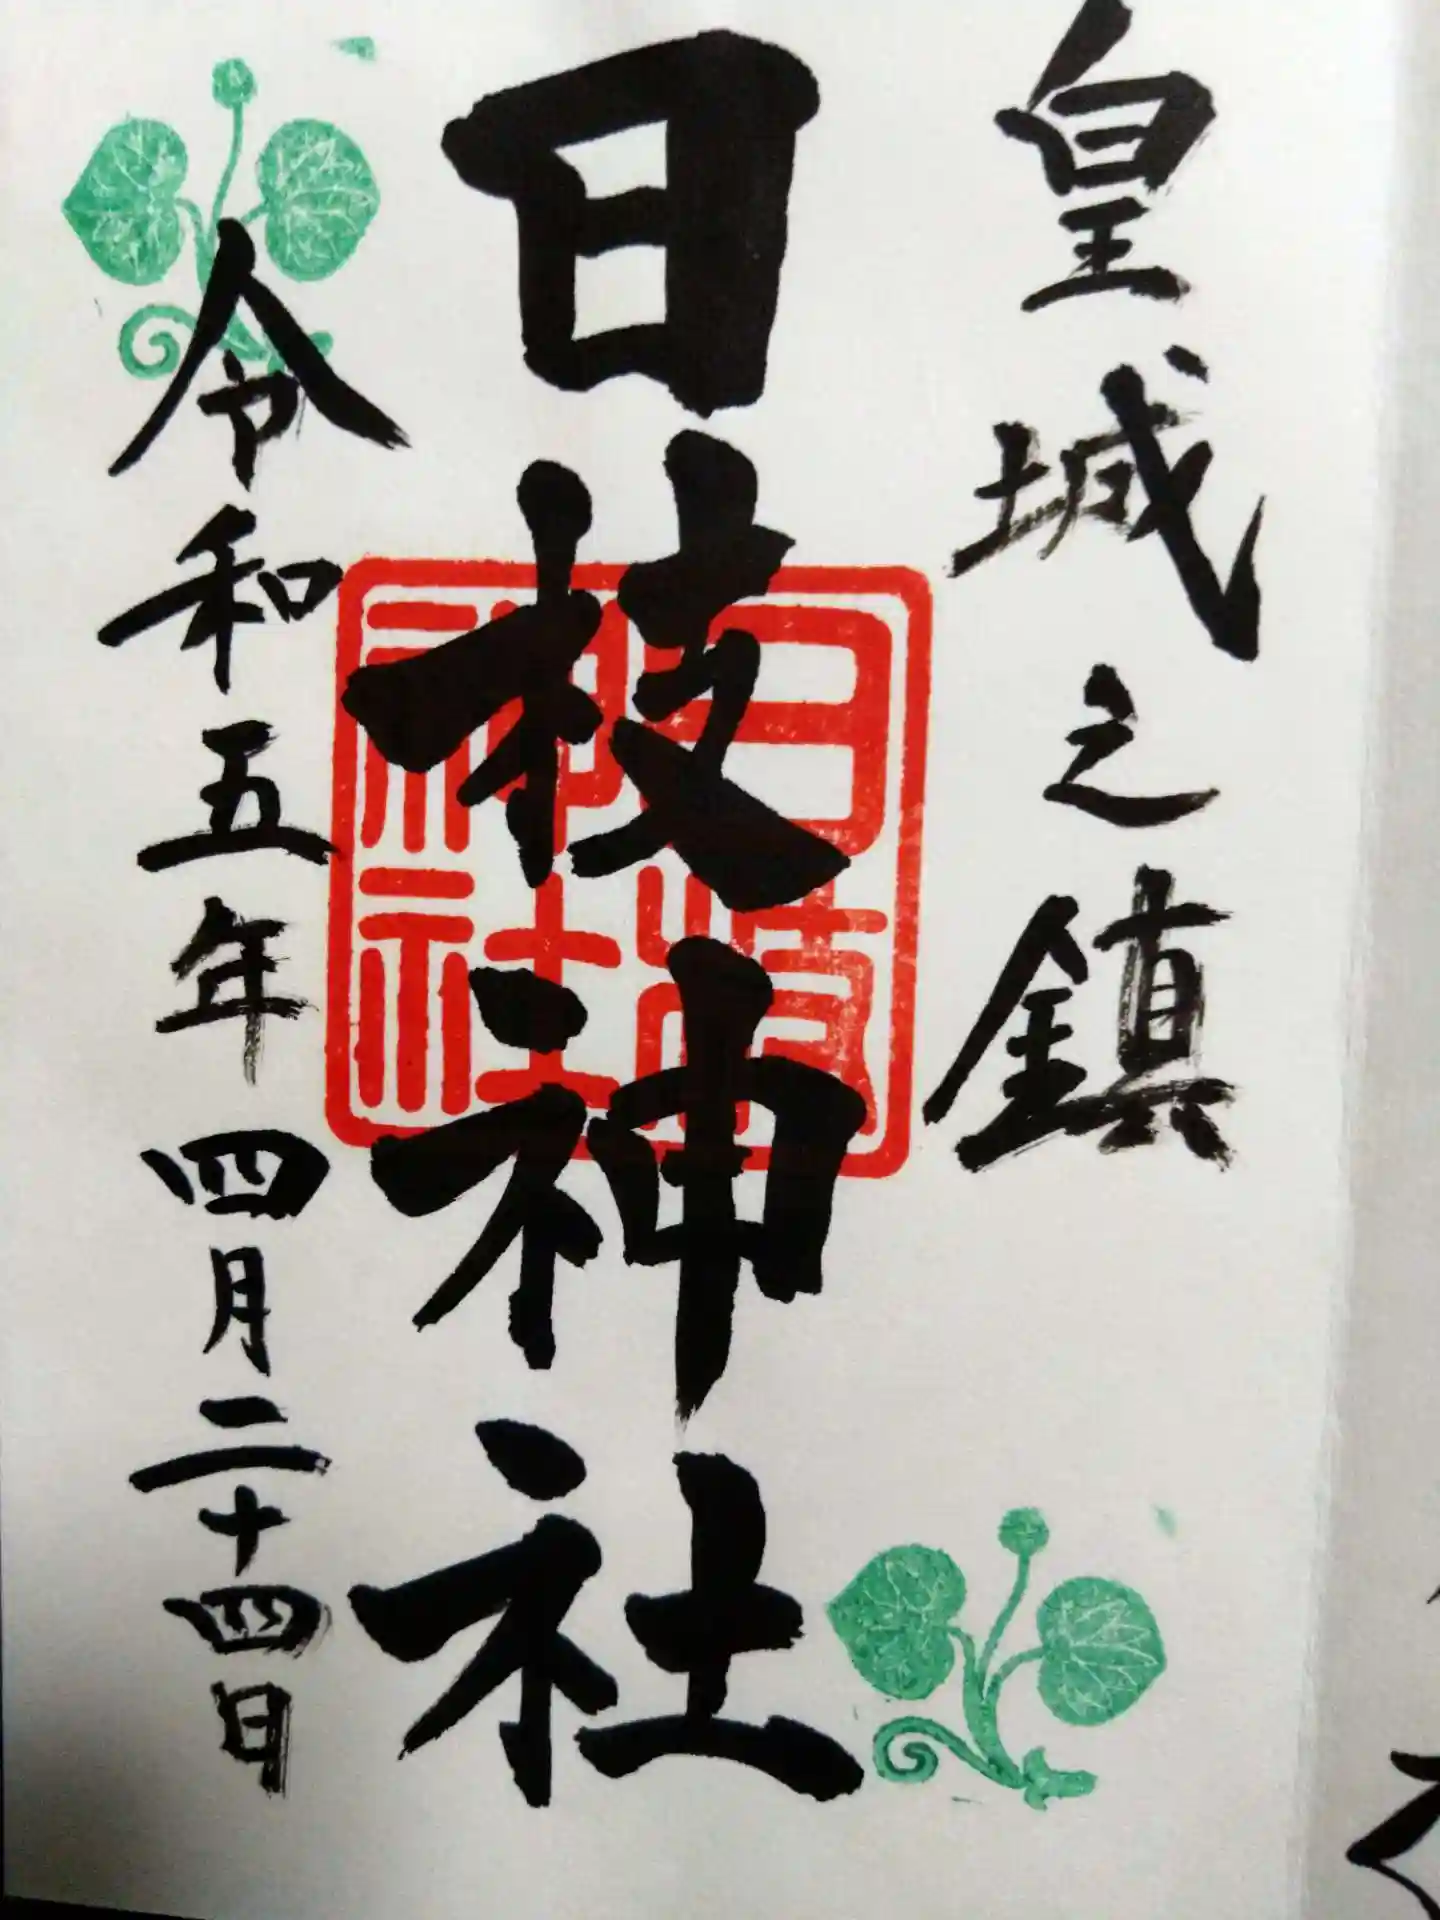 皇城之鎮
日枝神社
日枝神社
令和五年四月二十四日